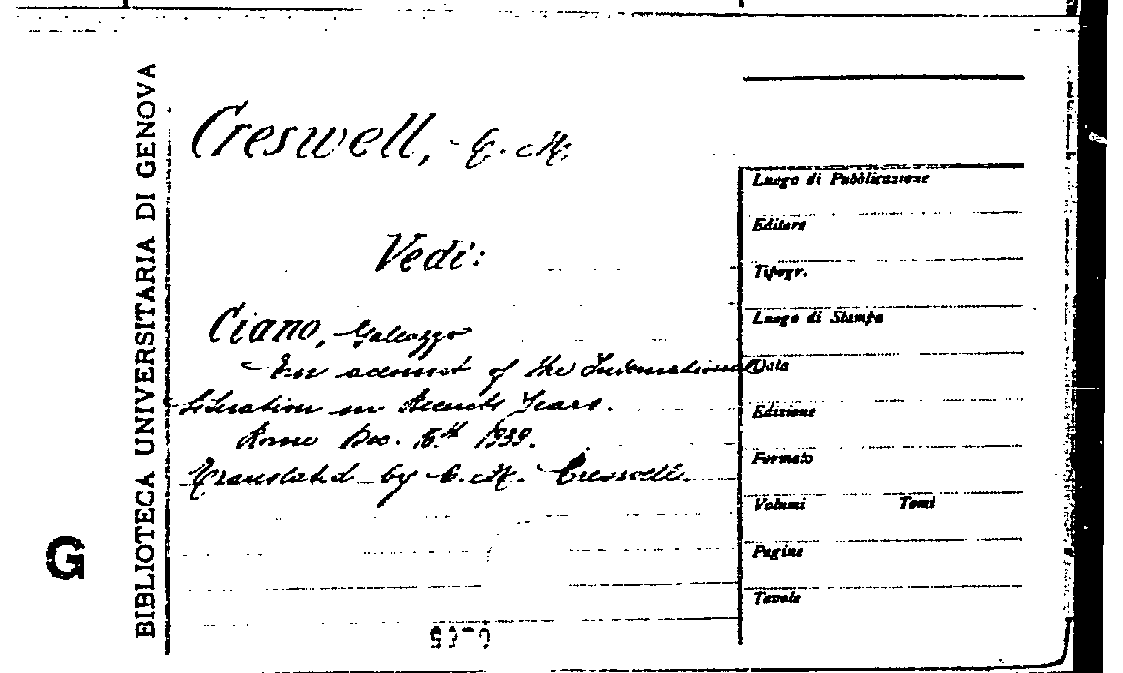 BIBLIOTECA UNIVERSITARIA DI GENOVA
G
Creswell, G. M.
Vedi:
Ciano, Galeazzo
An account of the International
Situation in Recents Years.
Rome Dec. 16th 1939.
Translated by G. M. Creswell.
Luogo di Pubblicazione
Editore
Tipogr.
Luogo di Stampa
Data
Edizione
Formato
Volumi Tomi
Pagine
Tavole